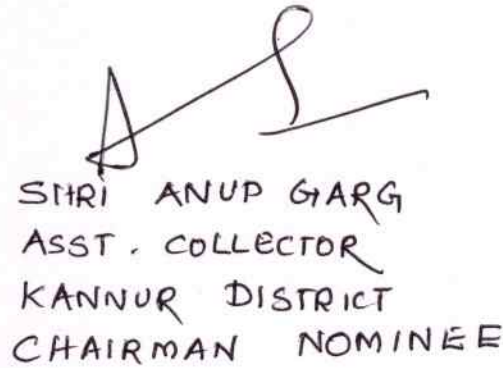 SHRI ANUP GARG
ASST. COLLECTOR
KANNUR DISTRICT
CHAIRMAN NOMINEE